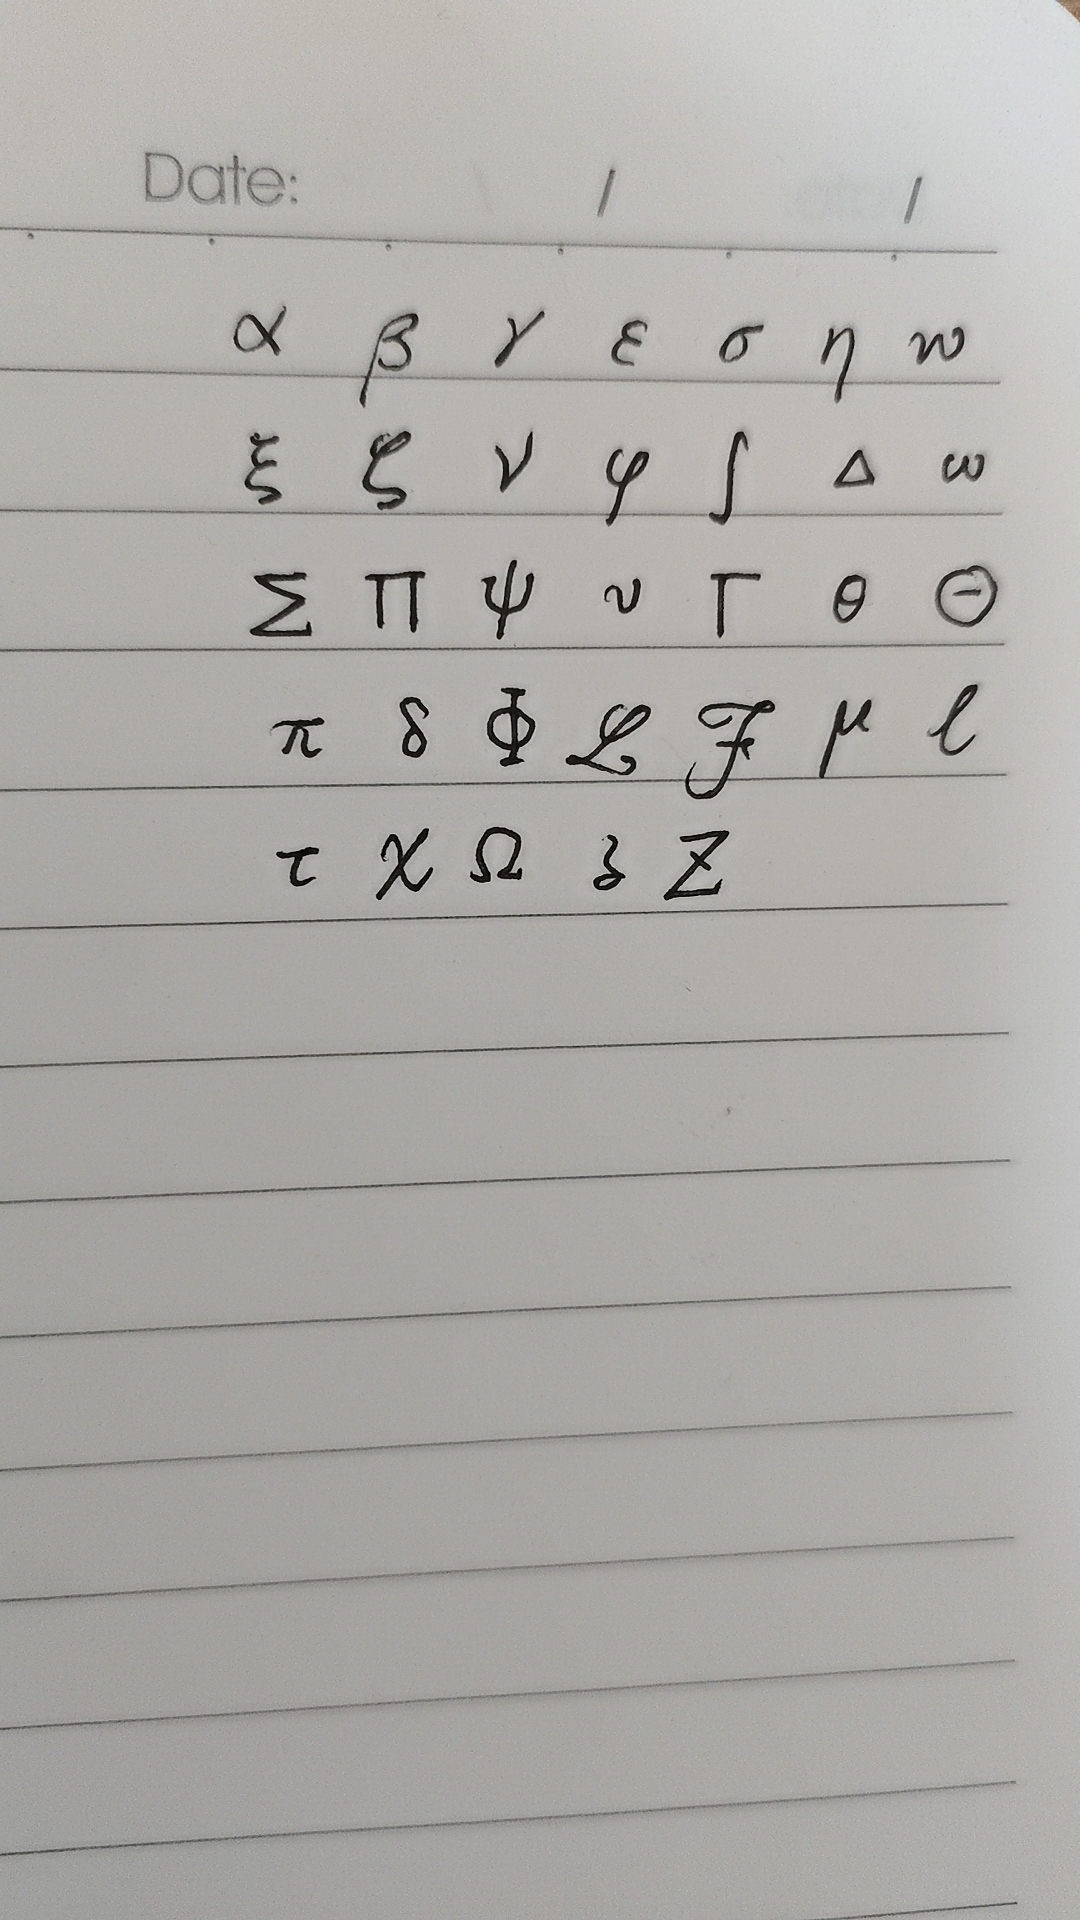 Date: / /
α β γ ε σ η w
ξ ζ ν φ ∫ Δ ω
Σ Π ψ υ Γ θ Θ
π δ Φ ℒ ℱ μ ℓ
τ χ Ω Z